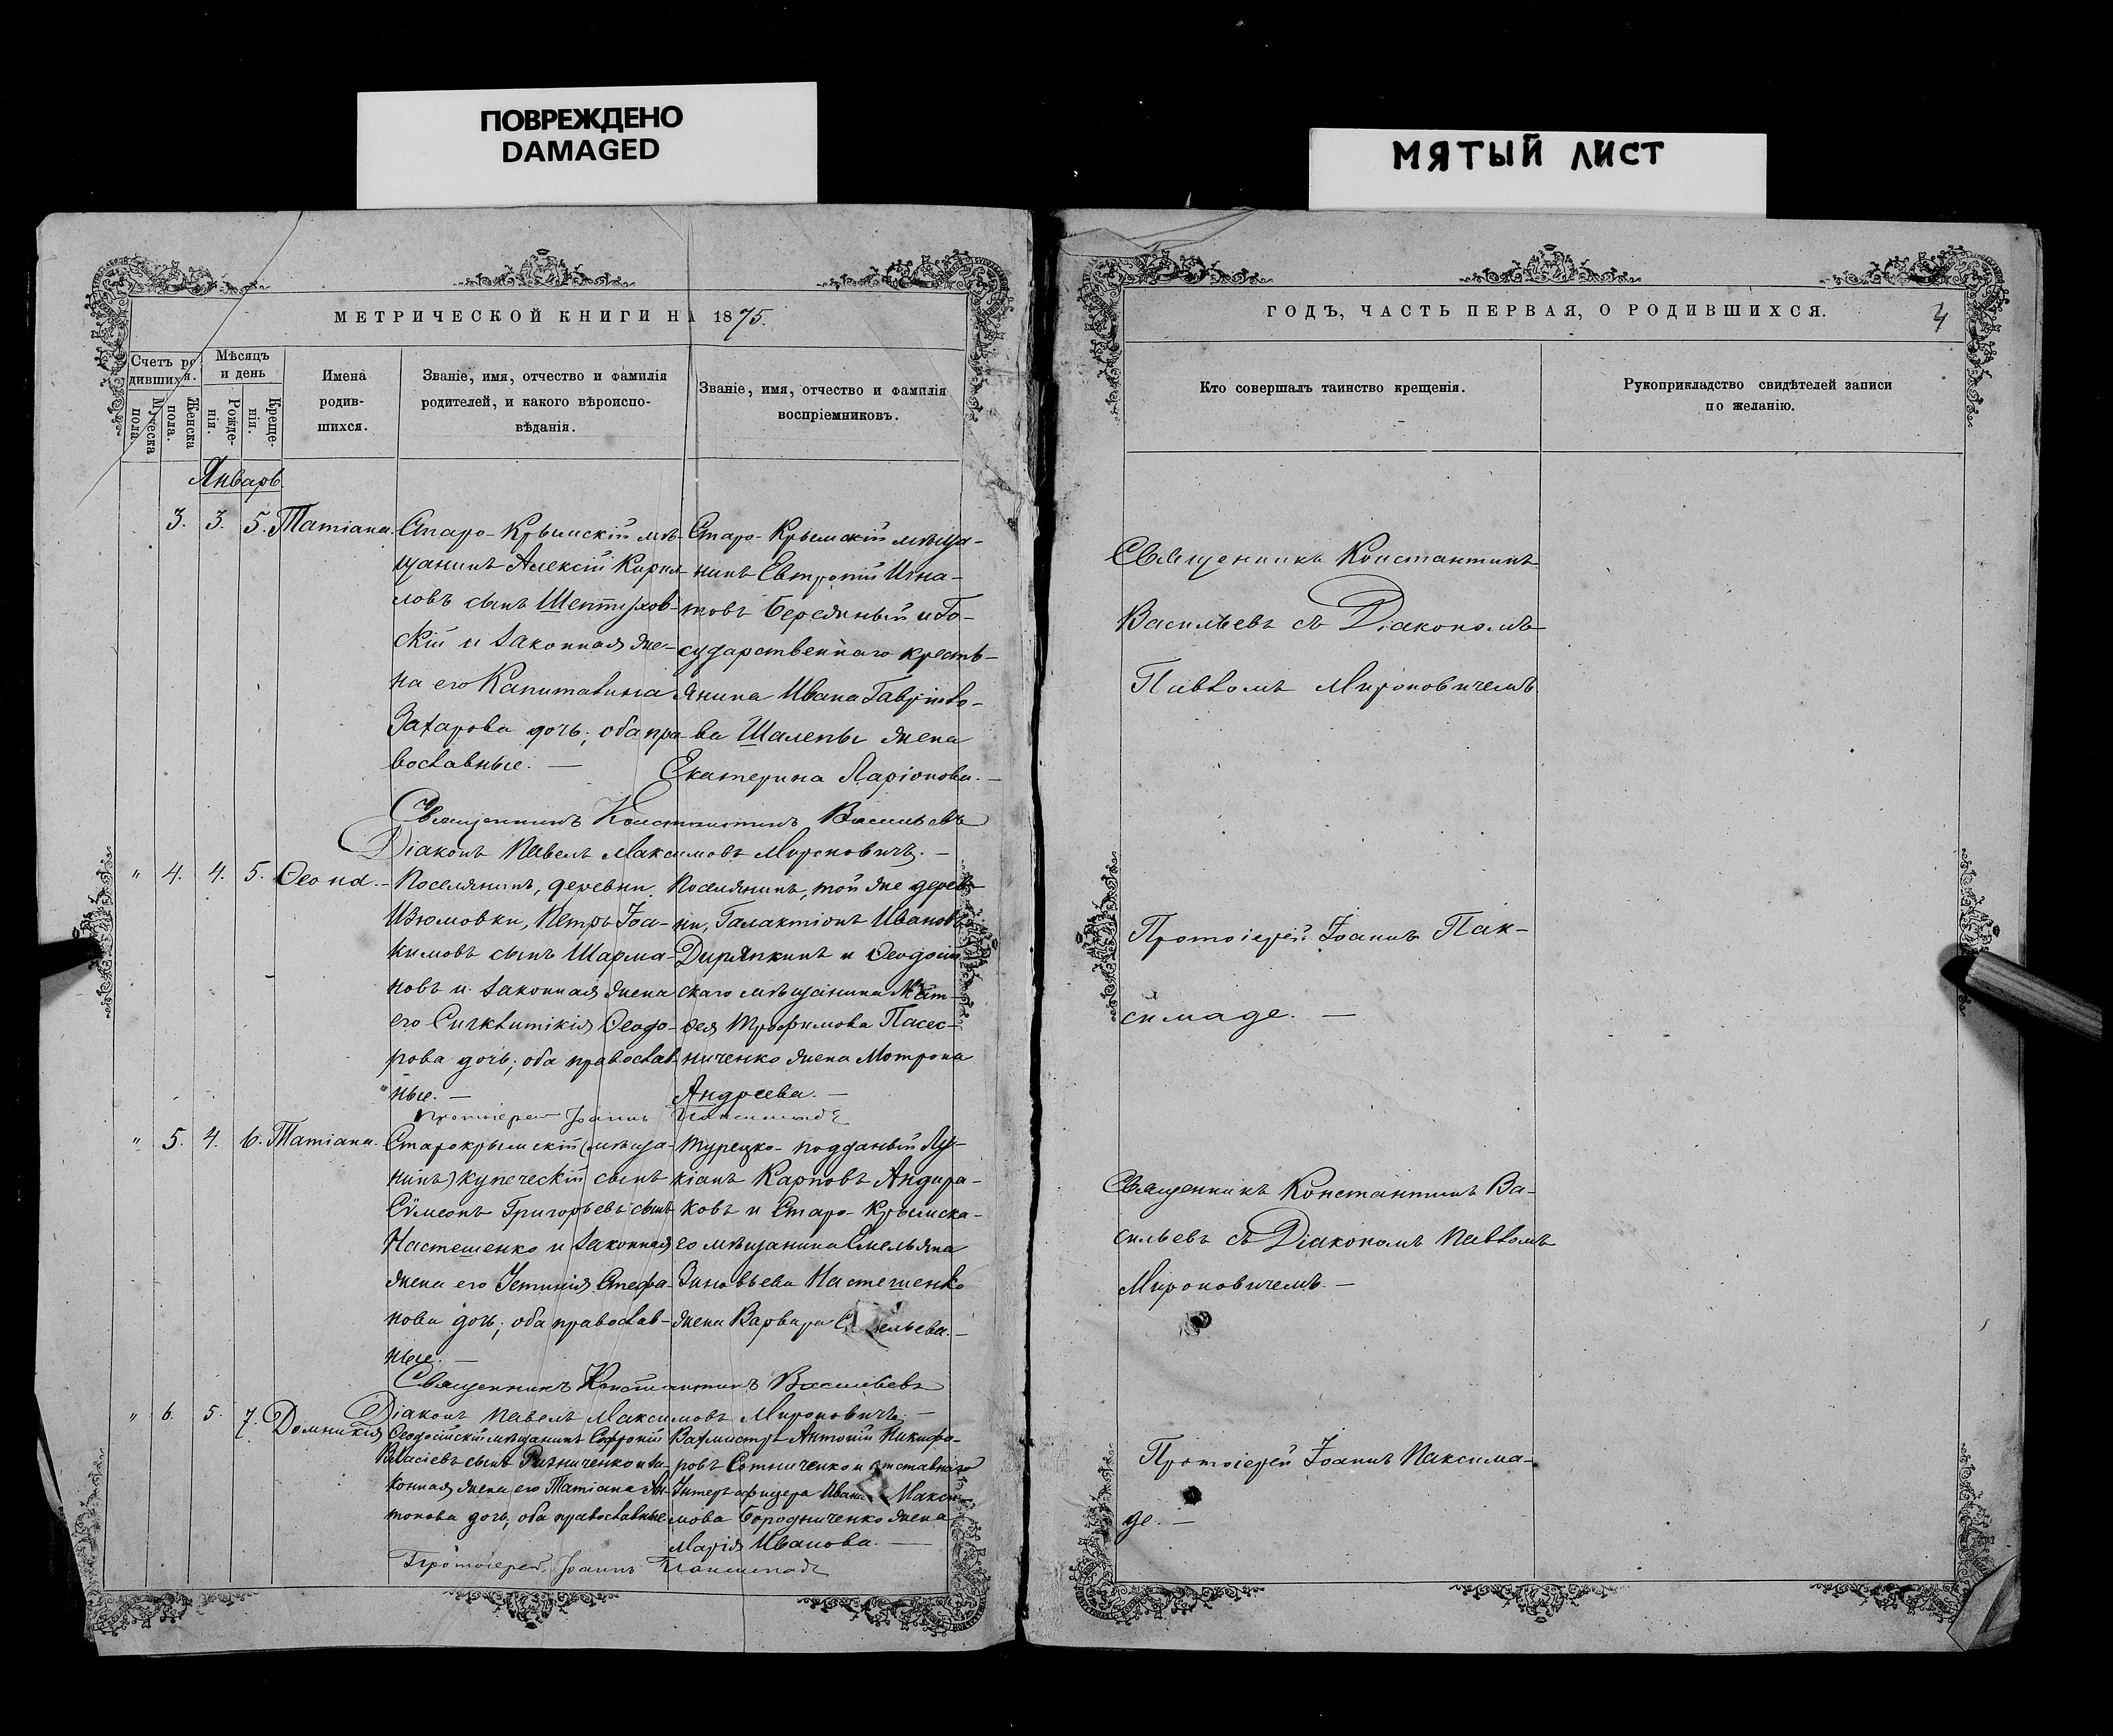 ПОВРЕЖДЕНО
DAMAGED
МЯТЫЙ ЛИСТ
МЕТРИЧЕСКОЙ КНИГИ НА 1875.
Счетъ ро
дившихся.
Мѣсяцъ
и день
Мужеска
пола.
Женска
пола.
Рожде-
нія.
Креще-
нія.
Имена
родив-
шихся.
Званіе, имя, отчество и фамилія
родителей, и какого вѣроиспо-
вѣданія.
Званіе, имя, отчество и фамилія
воспріемниковъ.
Январь
3. 3. 5. Татіана.
Старо-Крымскій мѣ-
щанинъ Алексій Кирил-
ловъ сынъ Шептуховскій
скій и законная же-
на его Капитолина
Захарова дочь; оба пра-
вославные. —
Старо-Крымскій мѣща-
нинъ Евтропій Игна-
товъ Берединый и Го-
сударственнаго кресть-
янина Ивана Гаврило-
ва Шалепы жена
Екатерина Ларіонова. —
Священникъ Константинъ Васильевъ
Діаконъ Павелъ Максимовъ Мироновичъ. —
" 4. 4. 5. Ѳеона. —
Поселянинъ, деревни
Изюмовки, Петръ Іоа-
кимовъ сынъ Шарма-
новъ и законная жена
его Синклитикія Ѳеодо-
рова дочь; оба православ-
ные. —
Поселянинъ, той же дерев-
ни, Галактіонъ Ивановъ
Диряпкинъ и Ѳеодосій
скаго мѣщанина Мат-
ѳея Трофимова Пасес-
ниченко жена Мотрона
Андреева. —
Протоіерей Іоаннъ Паксимаде
" 5. 4. 6. Татіана.
Старокрымскій (мѣща-
нинъ) купеческій сынъ
Сѵмеонъ Григорьевъ сынъ
Настешенко и законная
жена его Устинія Стефа-
нова дочь; оба православ-
ные. —
Турецко-подданый Лу-
кіанъ Карповъ Андра-
ковъ и Старо-Крымска-
го мѣщанина Емельяна
Зиновьева Настешенко
жена Варвара
Священникъ Константинъ Васильевъ
Діаконъ Павелъ Максимовъ Мироновичъ. —
" 6. 5. 7. Домникія
Ѳеодосійскій мѣщанинъ Софроній
Власіевъ сынъ Ризниченко и за-
конная жена его Татіана Ан-
тонова дочь, оба православные
Вахмистръ Антоній Никифо-
ровъ Сотниченко и отставнаго
Унтеръ офицера Ивана Макси-
мова Бородниченко жена
Марія Иванова. —
Протоіерей Іоаннъ Паксимаде
ГОДЪ, ЧАСТЬ ПЕРВАЯ, О РОДИВШИХСЯ.
Кто совершалъ таинство крещенія.
Рукоприкладство свидѣтелей записи
по желанію.
Священникъ Константинъ
Васильевъ съ Діакономъ
Павломъ Мироновичемъ
Протоіерей Іоаннъ Пак-
симаде. —
Священникъ Константинъ Ва-
сильевъ съ Діакономъ Павломъ
Мироновичемъ. —
Протоіерей Іоаннъ Паксима-
де. —